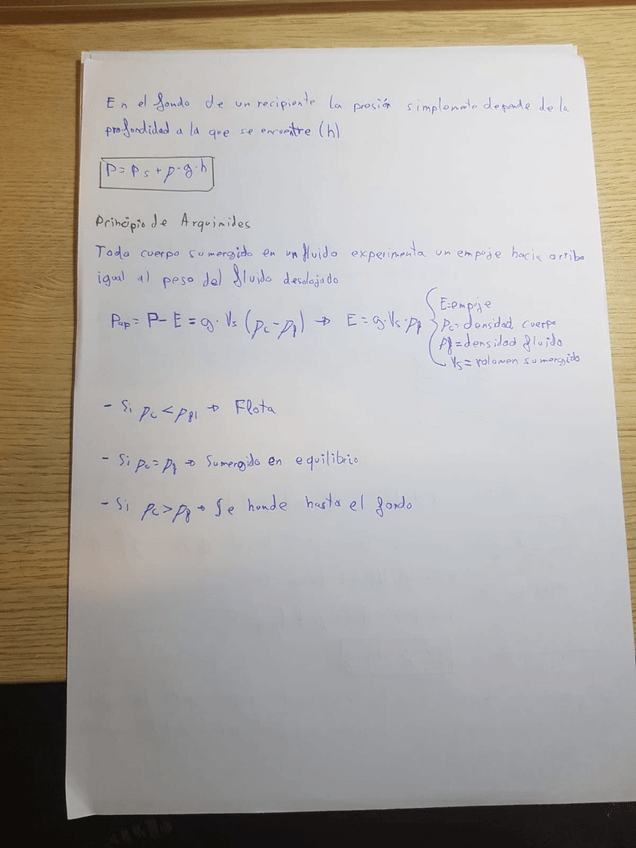 En el fondo de un recipiente la presión simplemente depende de la
profundidad a la que se encuentre (h)
P = Ps + ρ·g·h
Principio de Arquimides
Todo cuerpo sumergido en un fluido experimenta un empuje hacia arriba
igual al peso del fluido desalojado
Pap = P - E = g·Vs (ρc - ρf) → E = g·Vs·ρf
E = empuje
ρc = densidad cuerpo
ρf = densidad fluido
Vs = volumen sumergido
- Si ρc < ρfl → Flota
- Si ρc = ρf → Sumergido en equilibrio
- Si ρc > ρf → Se hunde hasta el fondo